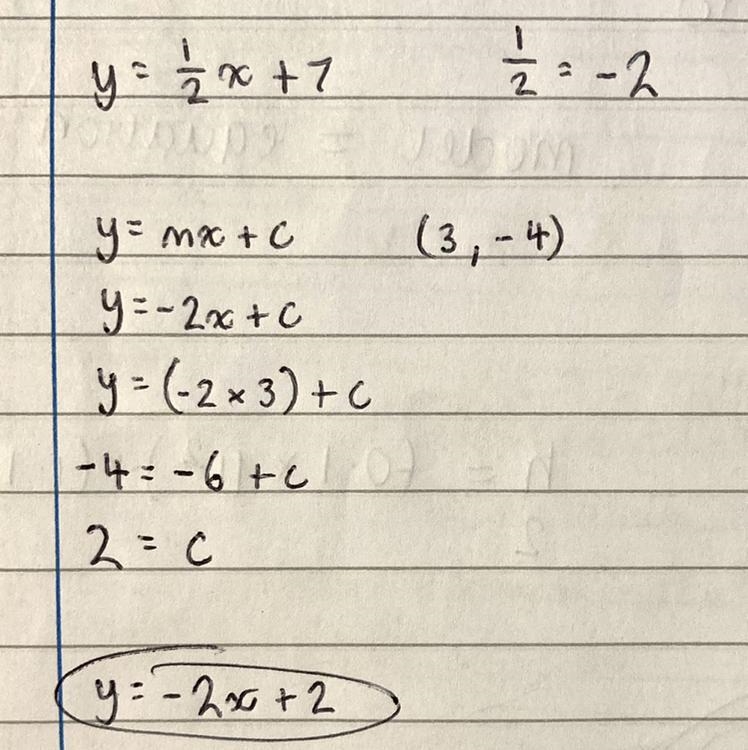 y = 1/2 x + 7    1/2 = -2
y = mx + c    (3, -4)
y = -2x + c
y = (-2 × 3) + c
-4 = -6 + c
2 = c
y = -2x + 2